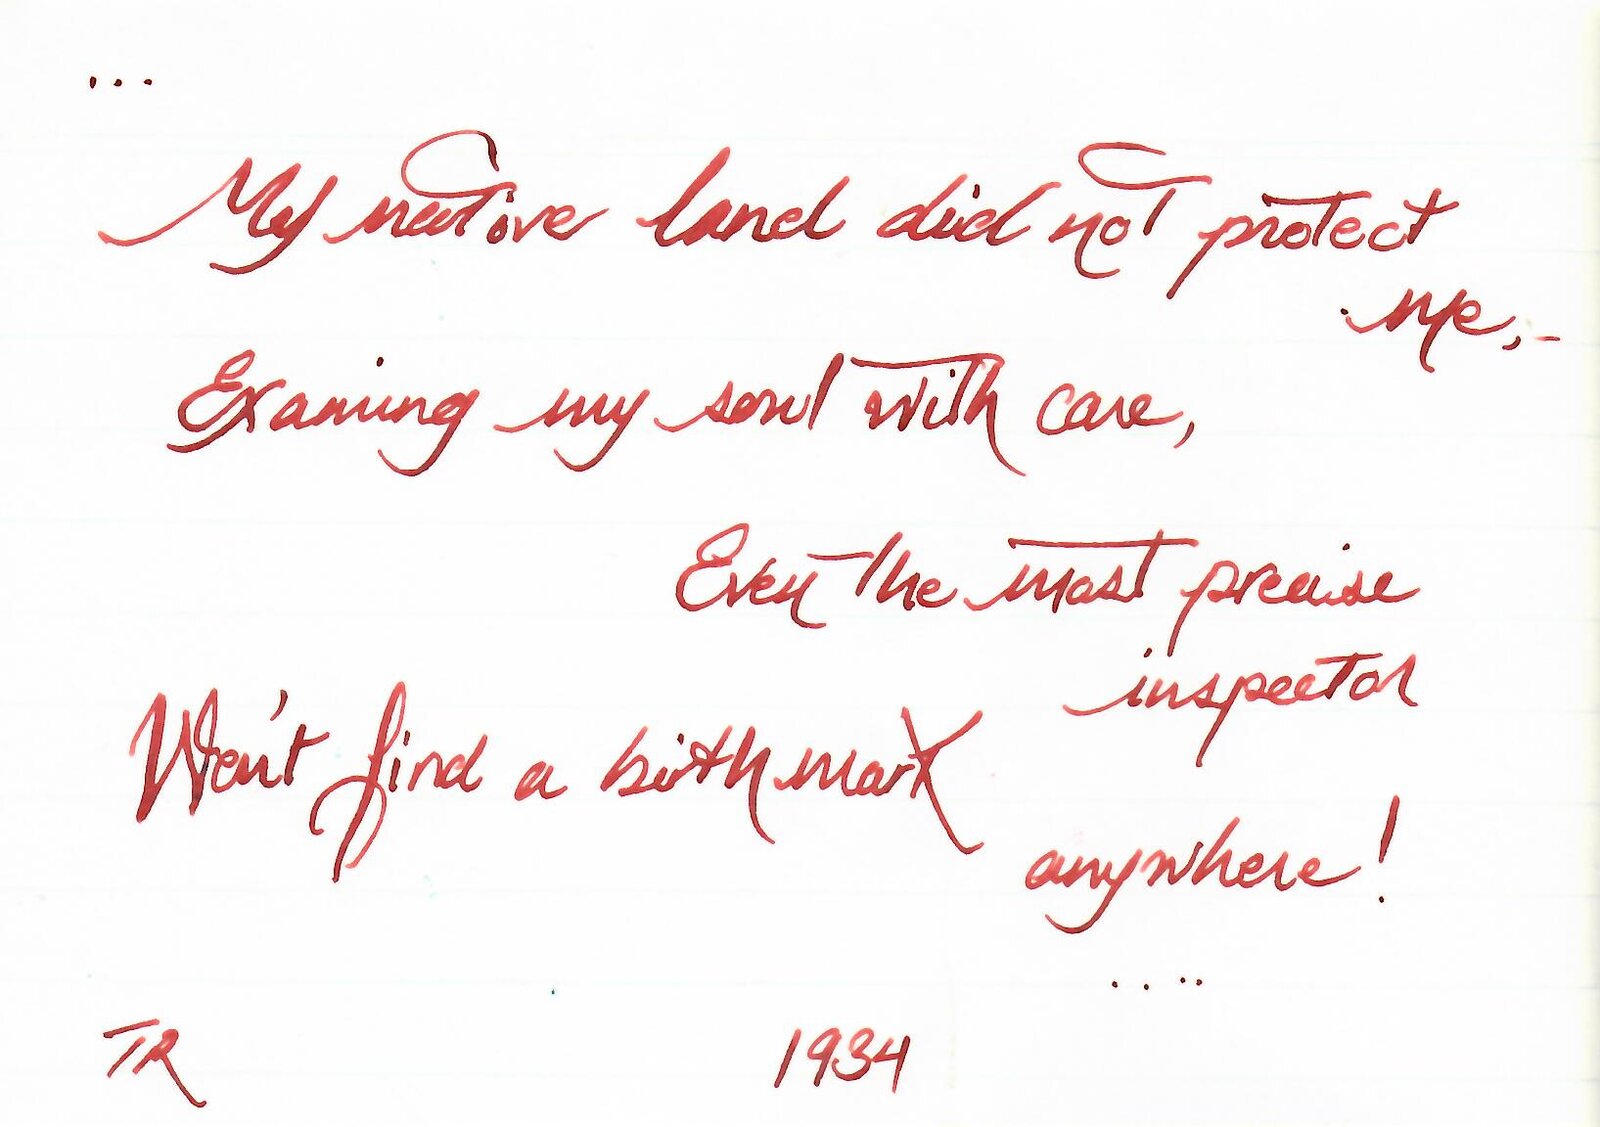 ...
My native land did not protect
me, -
Examing my soul with care,
Even the most precise
inspector
Won't find a birthmark
anywhere!
....
TR 1934